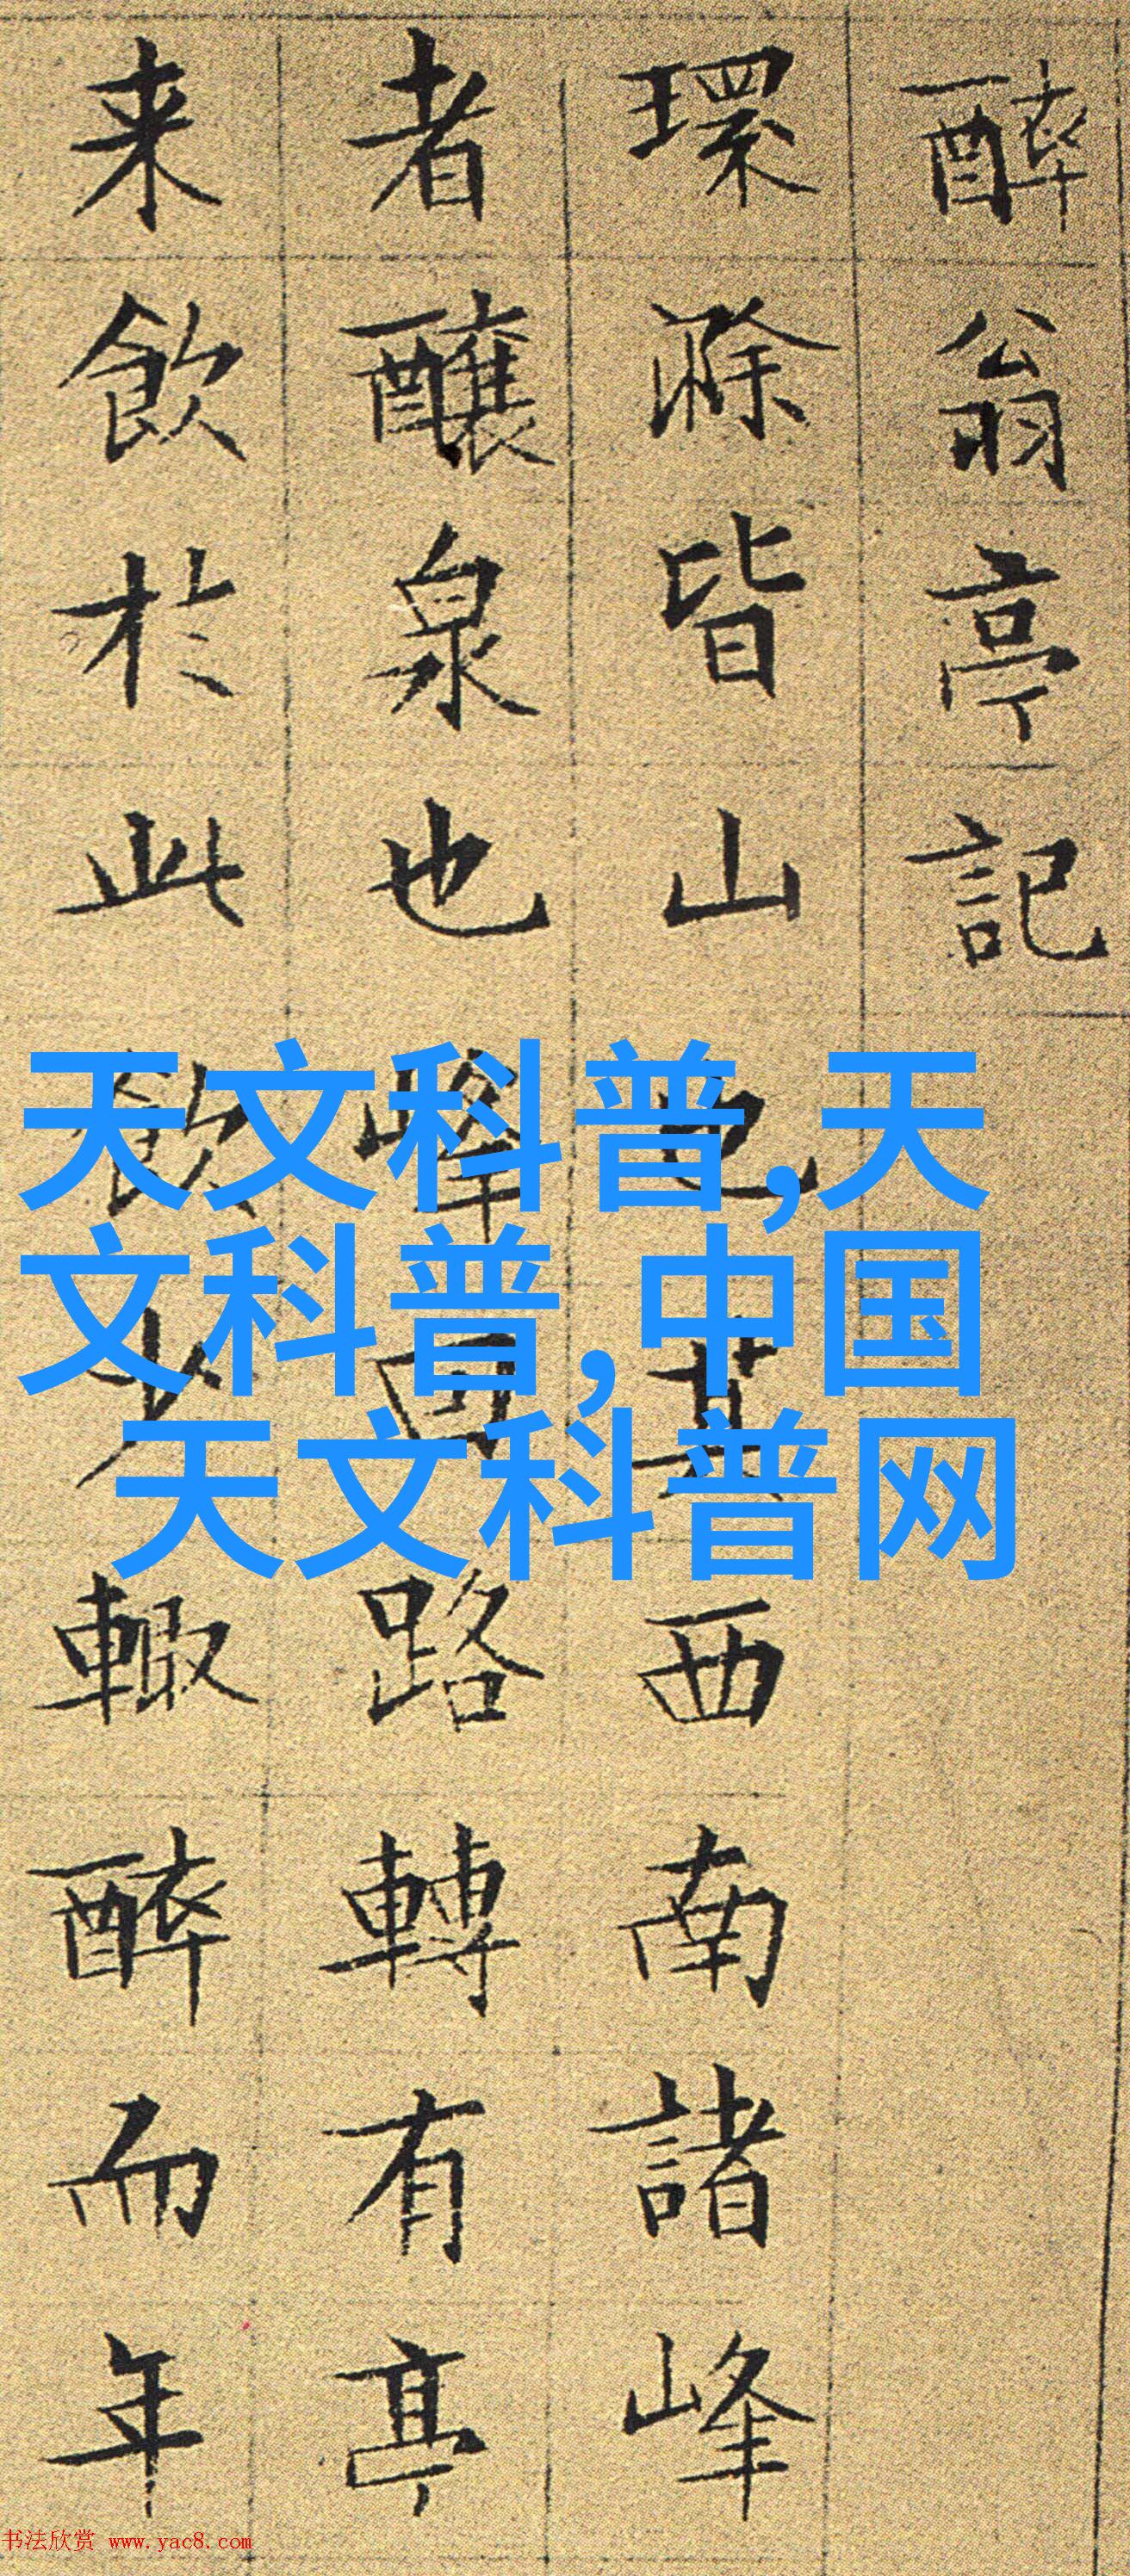 醉翁亭記
環滁皆山也其西南諸峰
者釀泉也峰回路轉有亭
来飲於此飲少輙醉而年
天文科普,天
文科普,中国
天文科普网
书法欣赏 www.yac8.com